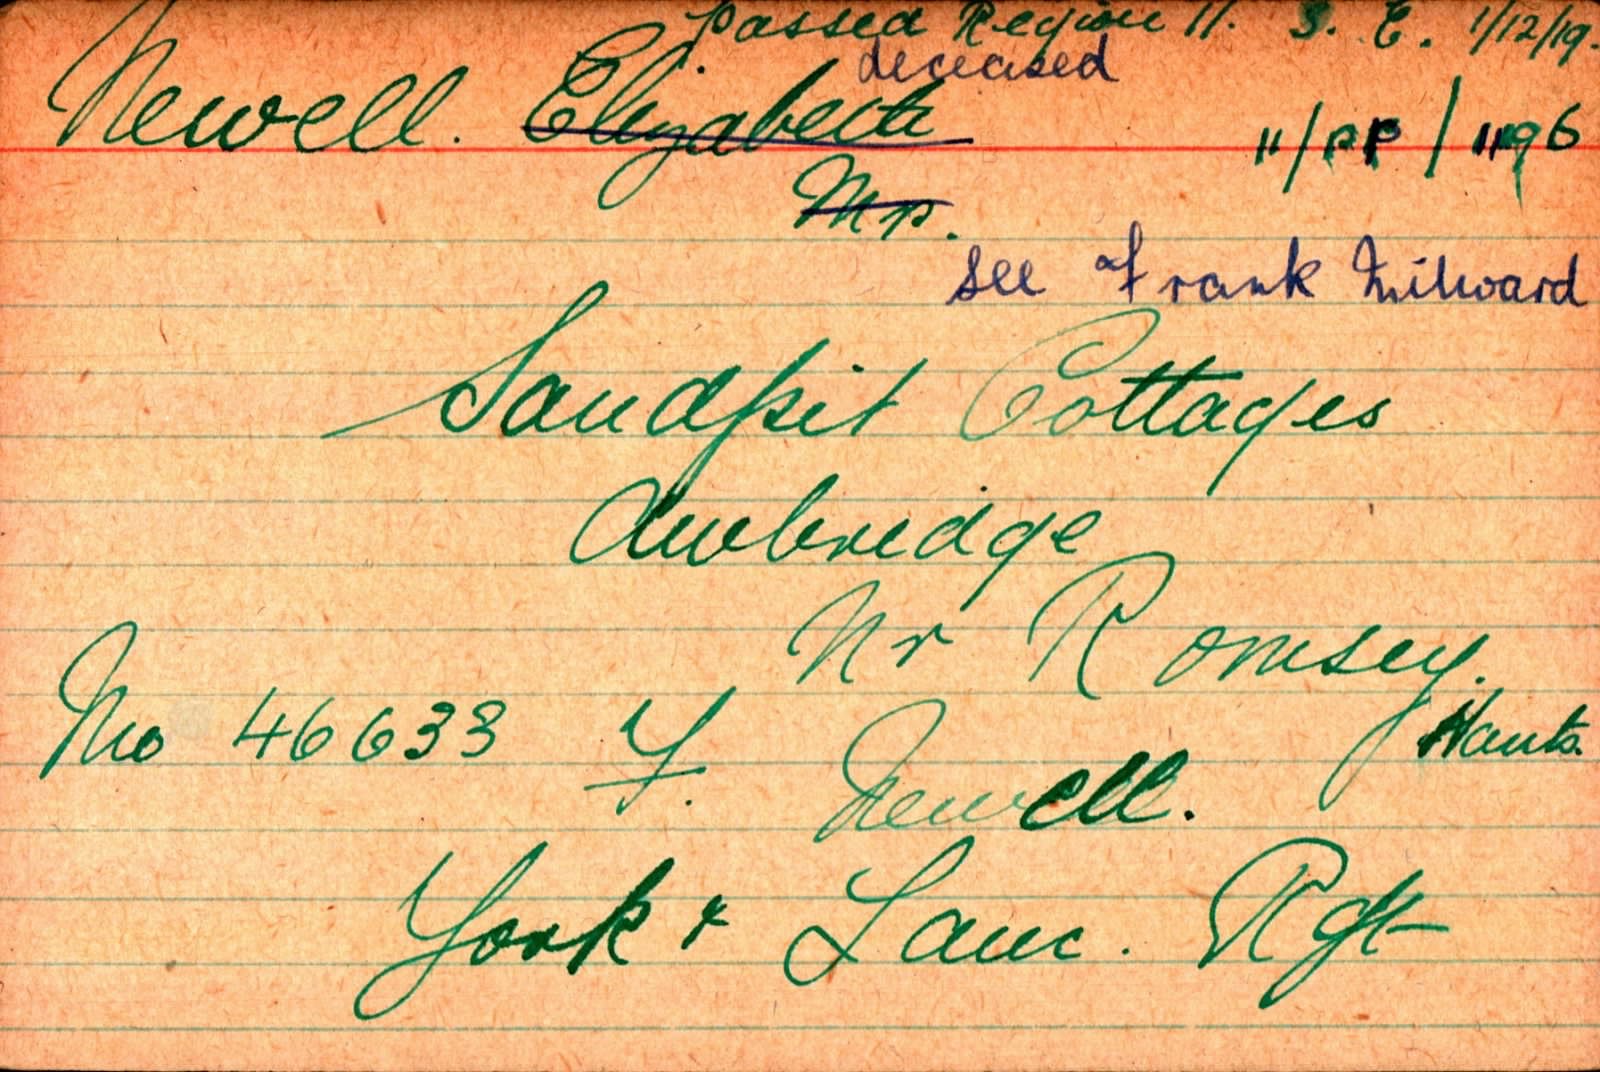 passed Region 11. S. E. 1/12/19.
deceased
Newell. Elizabeth
11/PP/1196
Mrs.
see Frank Milward
Sandpit Cottages
Awbridge
Nr Romsey.
Hants.
No 46633 F. Newell.
York & Lanc. Rgt